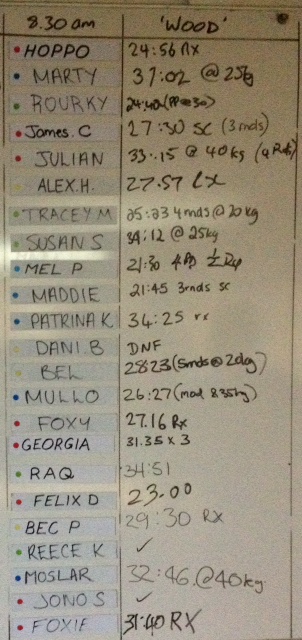 8.30 am 'WOOD'
HOPPO 24:56 Rx
MARTY 37:02 @ 25kg
ROURKY 24:40 (PP@30)
James. C 27:30 SC (3rnds)
JULIAN 33:15 @ 40kg (4 Rnds)
ALEX.H. 27:57 Rx
TRACEY M 25:23 4rnds @ 20kg
SUSAN S 39:12 @ 25kg
MEL P 21:30 1/2 Rx
MADDIE 21:45 3rnds sc
PATRINA K 34:25 rx
DANI B DNF
BEL 28:23 (5rnds@20kg)
MULLO 26:27 (mod 835kg)
FOXY 27.16 Rx
GEORGIA 31.35 x 3
RAQ 34:51
FELIX D 23.00
BEC P 29:30 RX
REECE K ✓
MOSLAR 32:46 @40kg
JONO S ✓
FOXIE 31:40 RX